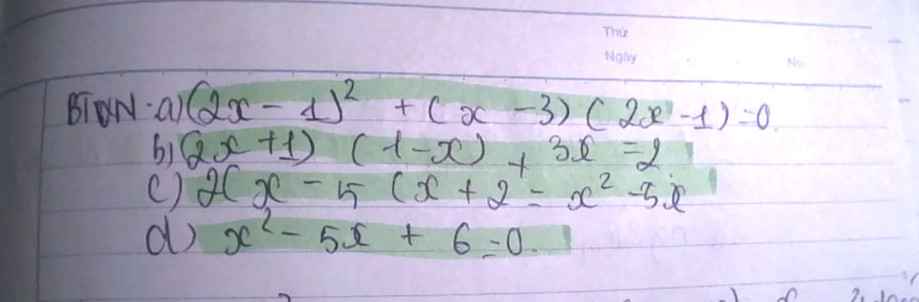 Thứ
Ngày
No
BTVN. a) (2x - 1)² + (x - 3) (2x - 1) = 0.
b) (2x + 1) (1 - x) + 3x = 2
c) 2(x - 5 (x + 2 = x² - 5x
d) x² - 5x + 6 = 0.